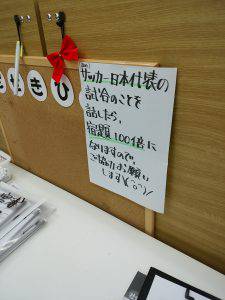 サッカー日本代表の
試合のことを
話したら、
宿題100倍に
なりますので、
ご協力お願い
します\(^o^)/
き
ひ